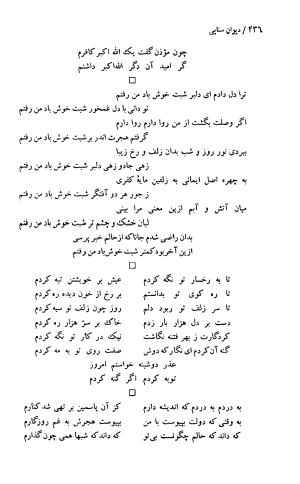 ۴۳۶ / دیوان سنایی
چون مؤذن گفت یک الله اکبر کافرم
گر امید آن دگر الله‌اکبر داشتم
ترا دل دادم ای دلبر شبت خوش باد من رفتم
تو دانی با دل غمخور شبت خوش باد من رفتم
اگر وصلت بگشت از من روا دارم روا دارم
گرفتم هجرت اندر بر شبت خوش باد من رفتم
ببردی نور روز و شب بدان زلف و رخ زیبا
زهی جادو زهی دلبر شبت خوش باد من رفتم
به چهره اصل ایمانی به زلفین مایهٔ کفری
ز جور هر دو آفتگر شبت خوش باد من رفتم
میان آتش و آبم ازین معنی مرا بینی
لبان خشک و چشم تر شبت خوش باد من رفتم
بدان راضی شدم جانا که از حالم خبر پرسی
ازین آخر بود کمتر شبت خوش باد من رفتم
تا به رخسار تو نگه کردم عیش بر خویشتن تبه کردم
تا ره کوی تو بدانستم بر رخ از خون دیده ره کردم
تا سر زلف تو ربود دلم روز چون زلف تو سیه کردم
دست بر دل هزار بار زدم خاک بر سر هزار ره کردم
کارگردت ز بهر فتنه نگاشت نیک در کار تو نگه کردم
گنه آن کردم ای نگار که دوش صفت روی تو به مه کردم
عذر دوشینه خواستم امروز
توبه کردم اگر گنه کردم
به دردم به دردم که اندیشه دارم کز آن یاسمین بر تهی شد کنارم
به وقتی که دولت بپیوست با من بپیوست هجرش به غم روزگارم
که داند که حالم چگونست بی‌تو که داند که شبها همی چون گذارم